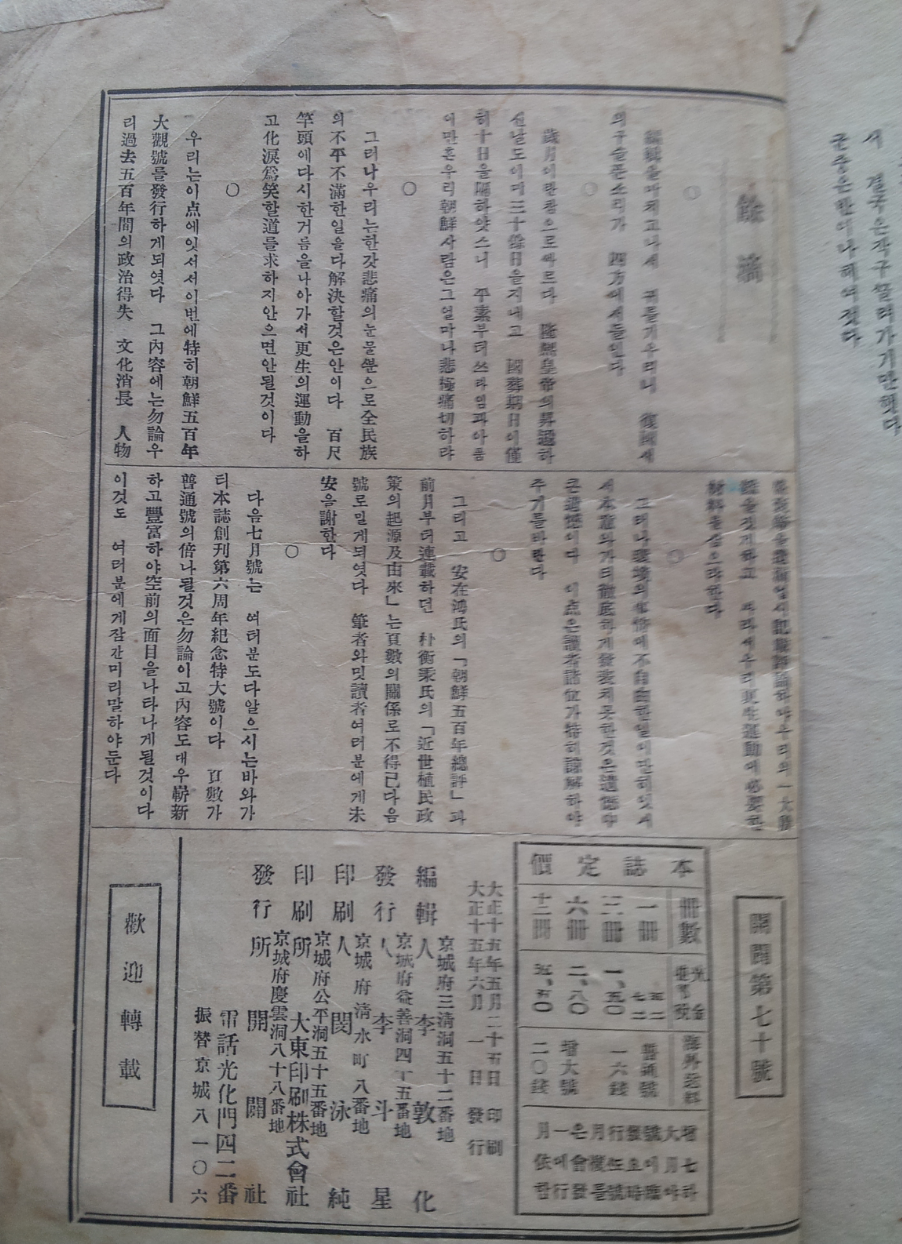 餘滴
○
編輯을마치고나서 귀를기우리니
의구슬픈소리가 四方에서들닌다
○
歲月이란참으로싸르다 隆熙皇帝의昇遐하
신날도이데三十餘日을지내고 國葬期日이僅
히十日을隔하얏스니 平素부터쓰라임과아픔
이만흔우리朝鮮사람은그얼마나悲極痛切하랴
○
그러나우리는한갓悲痛의눈물뿐으로全民族
의不平不滿한일을다解決할것은안이다 百尺
竿頭에다시한거름을나아가서更生의運動을하
고化淚爲笑할道를求하지안으면안될것이다
○
우리는이点에잇서서이번에特히朝鮮五百年
大觀號를發行하게되엿다 그內容에는勿論우
리過去五百年間의政治得失 文化消長 人物
우리의一大
하고 따라서우리更生運動에必要한
材料를삼으랴한다
○
그러나環境의事情에不自由한일이만허잇서
서本意와가티徹底하게發表치못한것은遺憾中
큰遺憾이다 이点은讀者諸位가特히諒解하야
주기를바란다
○
그리고 安在鴻氏의「朝鮮五百年總評」과
前月부터連載하던 朴衡秉氏의「近世植民政
策의起源及由來」는頁數의關係로不得已다음
號로밀게되엿다 筆者와밋讀者여러분에게未
安을謝한다
○
다음七月號는 여러분도다알으시는바와가
티本誌創刊第六周年紀念特大號이다 頁數가
普通號의倍나될것은勿論이고內容도대우嶄新
하고豐富하야空前의面目을나타나게될것이다
이것도 여러분에게잠간미리말하야둔다
開闢第七十號
本誌定價
冊數
一冊
三冊 一、五〇
六冊 二、八〇
十二冊 五、五〇
海外送料
普通號
一六錢
增大號
二〇錢
大正十五年五月二十五日 印刷
大正十五年六月 一日 發行
京城府三淸洞五十二番地
編輯人 李敦化
京城府益善洞四十五番地
發行人 李斗星
京城府淸水町八番地
印刷人 閔泳純
京城府公平洞五十五番地
印刷所 大東印刷株式會社
京城府慶雲洞八十八番地
發行所 開闢社
電話光化門四二番
振替京城八一〇六
歡迎轉載